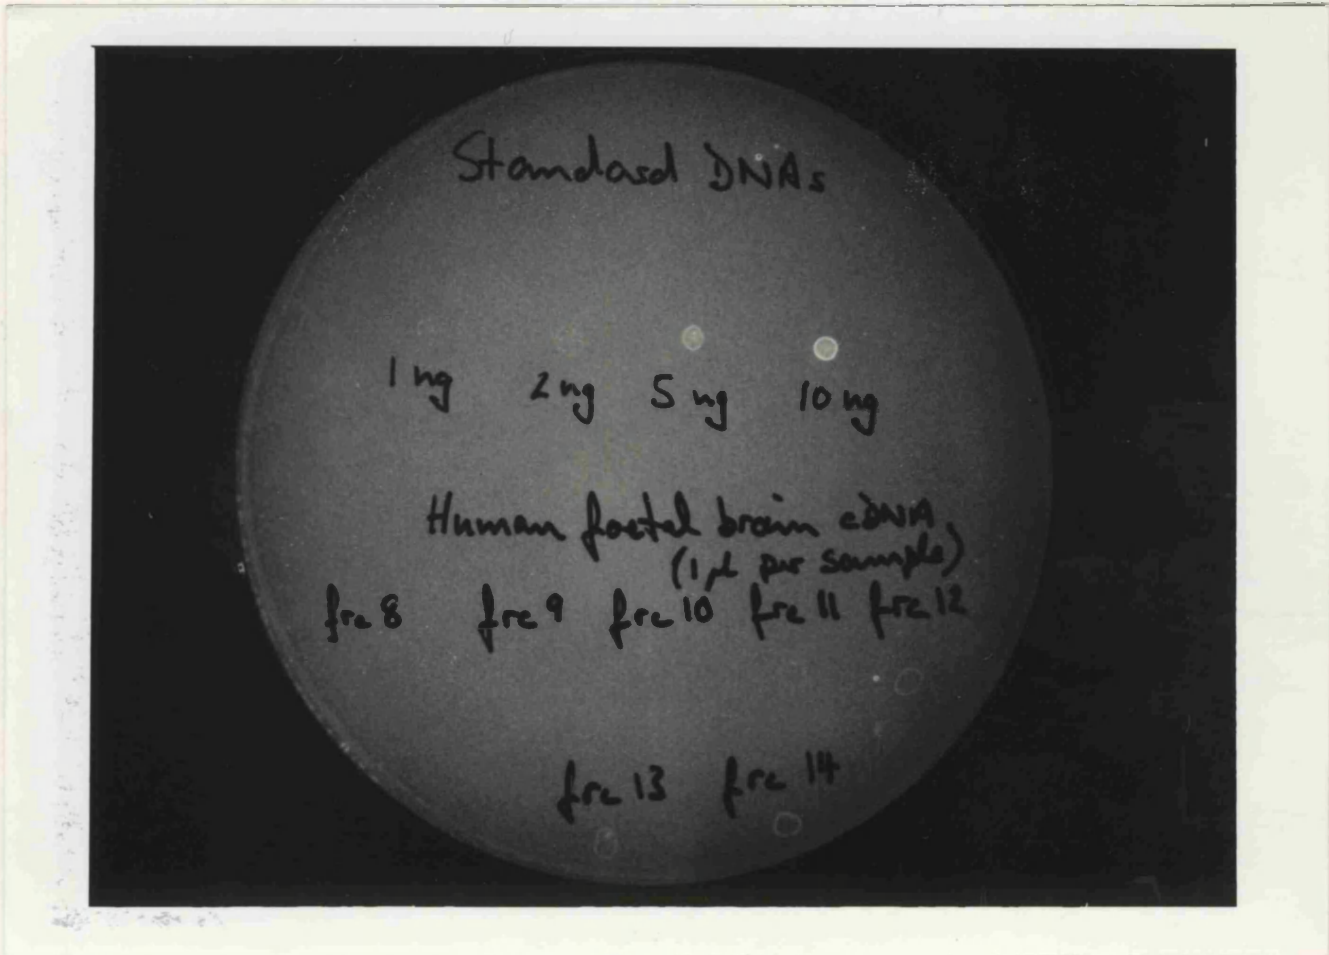 Standard DNAs
1 ng 2 ng 5 ng 10 ng
Human foetal brain cDNA
(1 µl per sample)
frc 8 frc 9 frc 10 frc 11 frc 12
frc 13 frc 14